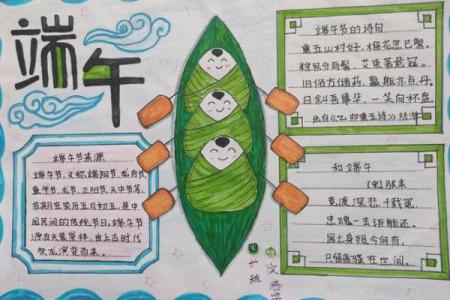 端午
端午节来源
端午节,又称端阳节,龙舟节,
重午节,龙节,正阳节,天中节等,
节期在农历五月初五,是中
国民间的传统节日,端午节
源自天象崇拜,由上古时代
祭龙演变而来。
端午节的诗句
重五山村好,榴花忽已繁。
粽包分两髻,艾束著危冠。
旧俗方储药,羸躯亦点丹。
日斜吾事毕,一笑向杯盘。
出自《乙卯重五诗》陆游
和端午
[宋]张耒
竞渡深悲千载冤,
忠魂一去讵能还。
国土身殒今何有,
只留离骚在世间。